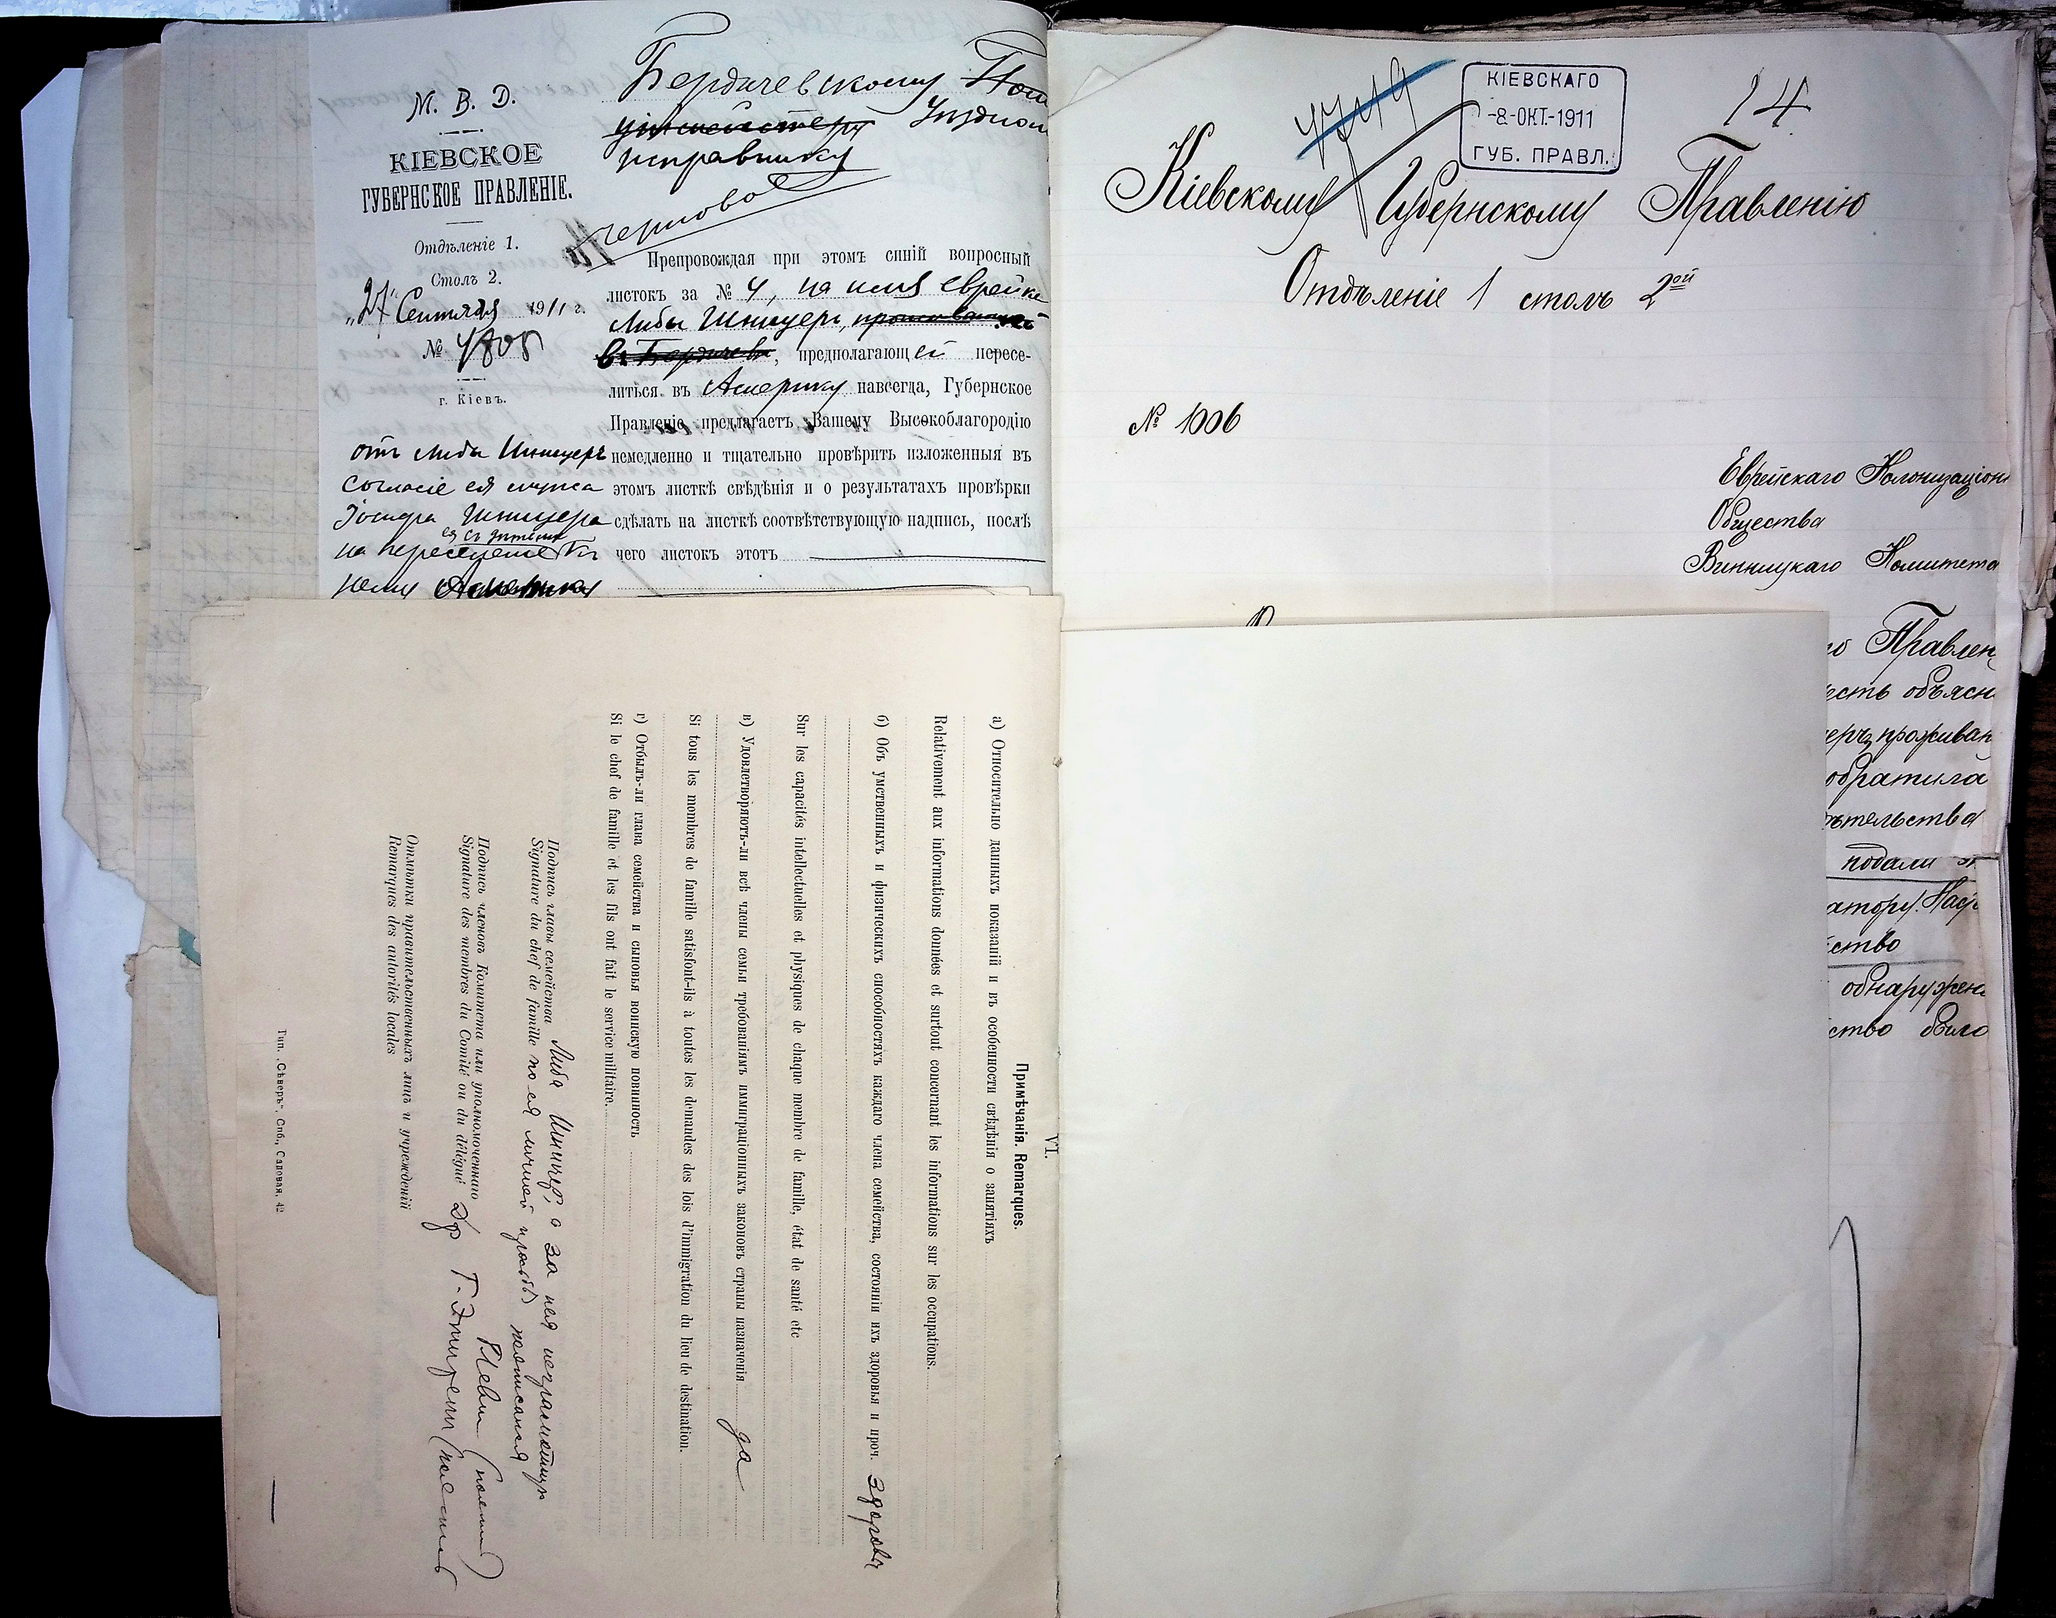 М. В. Д.
КІЕВСКОЕ
ГУБЕРНСКОЕ ПРАВЛЕНІЕ.
Отдѣленіе 1.
Столъ 2.
„27" Сентября 1911 г.
№ 4805
г. Кіевъ.
Бердичевскому
исправнику
Препровождая при этомъ синій вопросный
листокъ за № 4, на имя еврейки
Либы Шницеръ,
въ Бердичевѣ, предполагающей пересе-
литься въ Америку навсегда, Губернское
Правленіе предлагаетъ Вашему Высокоблагородію
немедленно и тщательно провѣрить изложенныя въ
этомъ листкѣ свѣдѣнія и о результатахъ провѣрки
сдѣлать на листкѣ соотвѣтствующую надпись, послѣ
чего листокъ этотъ
отъ Либы Шницеръ
согласіе ея мужа
Іосифа Шницера
ея съ дѣтьми
на переселеніе
КІЕВСКАГО
-8-ОКТ.-1911
ГУБ. ПРАВЛ.
14
Кіевскому Губернскому Правленію
Отдѣленіе 1 столъ 2ой
№ 1006
Еврейскаго Колонизаціон
Общества
Винницкаго Комитета
го Правлен
есть объясн
еръ, прожива
обратила
ѣтельства
подали
атору. Нас
ство
обнаружен
ство было
VI.
Примѣчанія. Remarques.
а) Относительно данныхъ показаній и въ особенности свѣдѣнія о занятіяхъ
Relativement aux informations données et surtout concernant les informations sur les occupations.
б) Объ умственныхъ и физическихъ способностяхъ каждаго члена семейства, состояніи ихъ здоровья и проч. здоровы
Sur les capacités intellectuelles et physiques de chaque membre de famille, état de santé etc
в) Удовлетворяютъ-ли всѣ члены семьи требованіямъ иммиграціонныхъ законовъ страны назначенія да
Si tous les membres de famille satisfont-ils à toutes les demandes des lois d'immigration du lieu de destination.
г) Отбылъ-ли глава семейства и сыновья воинскую повинность
Si le chef de famille et les fils ont fait le service militaire.
Подпись главы семейства Либа Шницеръ, а за нея неграмотную
Signature du chef de famille по ея личной просьбѣ
Подпись членовъ Комитета или уполномоченнаго
Signature des membres du Comité ou du délégué Др Г.
Отмѣтки правительственныхъ лицъ и учрежденій
Remarques des autorités locales
Тип. „Сѣверъ", Спб., Садовая, 42